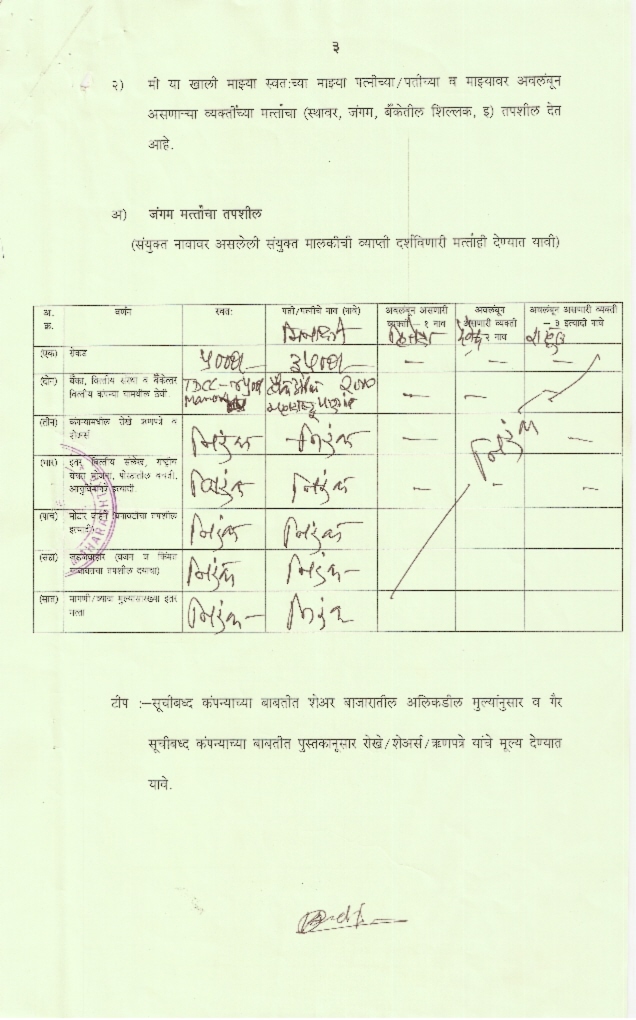 ३
२) मी या खाली माझ्या स्वतःच्या माझ्या पत्नीच्या/पतीच्या व माझ्यावर अवलंबून
असणाऱ्या व्यक्तींच्या मत्तांचा (स्थावर, जंगम, बँकेतील शिल्लक, इ) तपशील देत
आहे.
अ) जंगम मत्तांचा तपशील
(संयुक्त नावावर असलेली संयुक्त मालकीची व्याप्ती दर्शविणारी मत्ताही देण्यात यावी)
अ. क्र. वर्णन स्वतः पती/पत्नीचे नाव (नावे) अवलंबून असणारी व्यक्ती – १ नाव अवलंबून असणारी व्यक्ती – २ नाव अवलंबून असणारी व्यक्ती – ३ इत्यादी नावे
(एक) रोकड — — —
(दोन) बँका, वित्तीय संस्था व बँकेतर वित्तीय कंपन्या यामधील ठेवी. TDCC — —
(तीन) कंपन्यामधील रोखे ऋणपत्रे व शेअर्स निरंक निरंक — निरंक —
(चार) इतर वित्तीय संलेख, राष्ट्रीय बचत योजना, निरंक निरंक — — —
(पाच) मोटार निरंक निरंक
(सहा) निरंक निरंक
(सात) मागणी/व्याज इतर मत्ता निरंक निरंक
टीप :–सूचीबध्द कंपन्याच्या बाबतीत शेअर बाजारातील अलिकडील मुल्यांनुसार व गैर
सूचीबध्द कंपन्याच्या बाबतीत पुस्तकानुसार रोखे/शेअर्स/ऋणपत्रे यांचे मूल्य देण्यात
यावे.